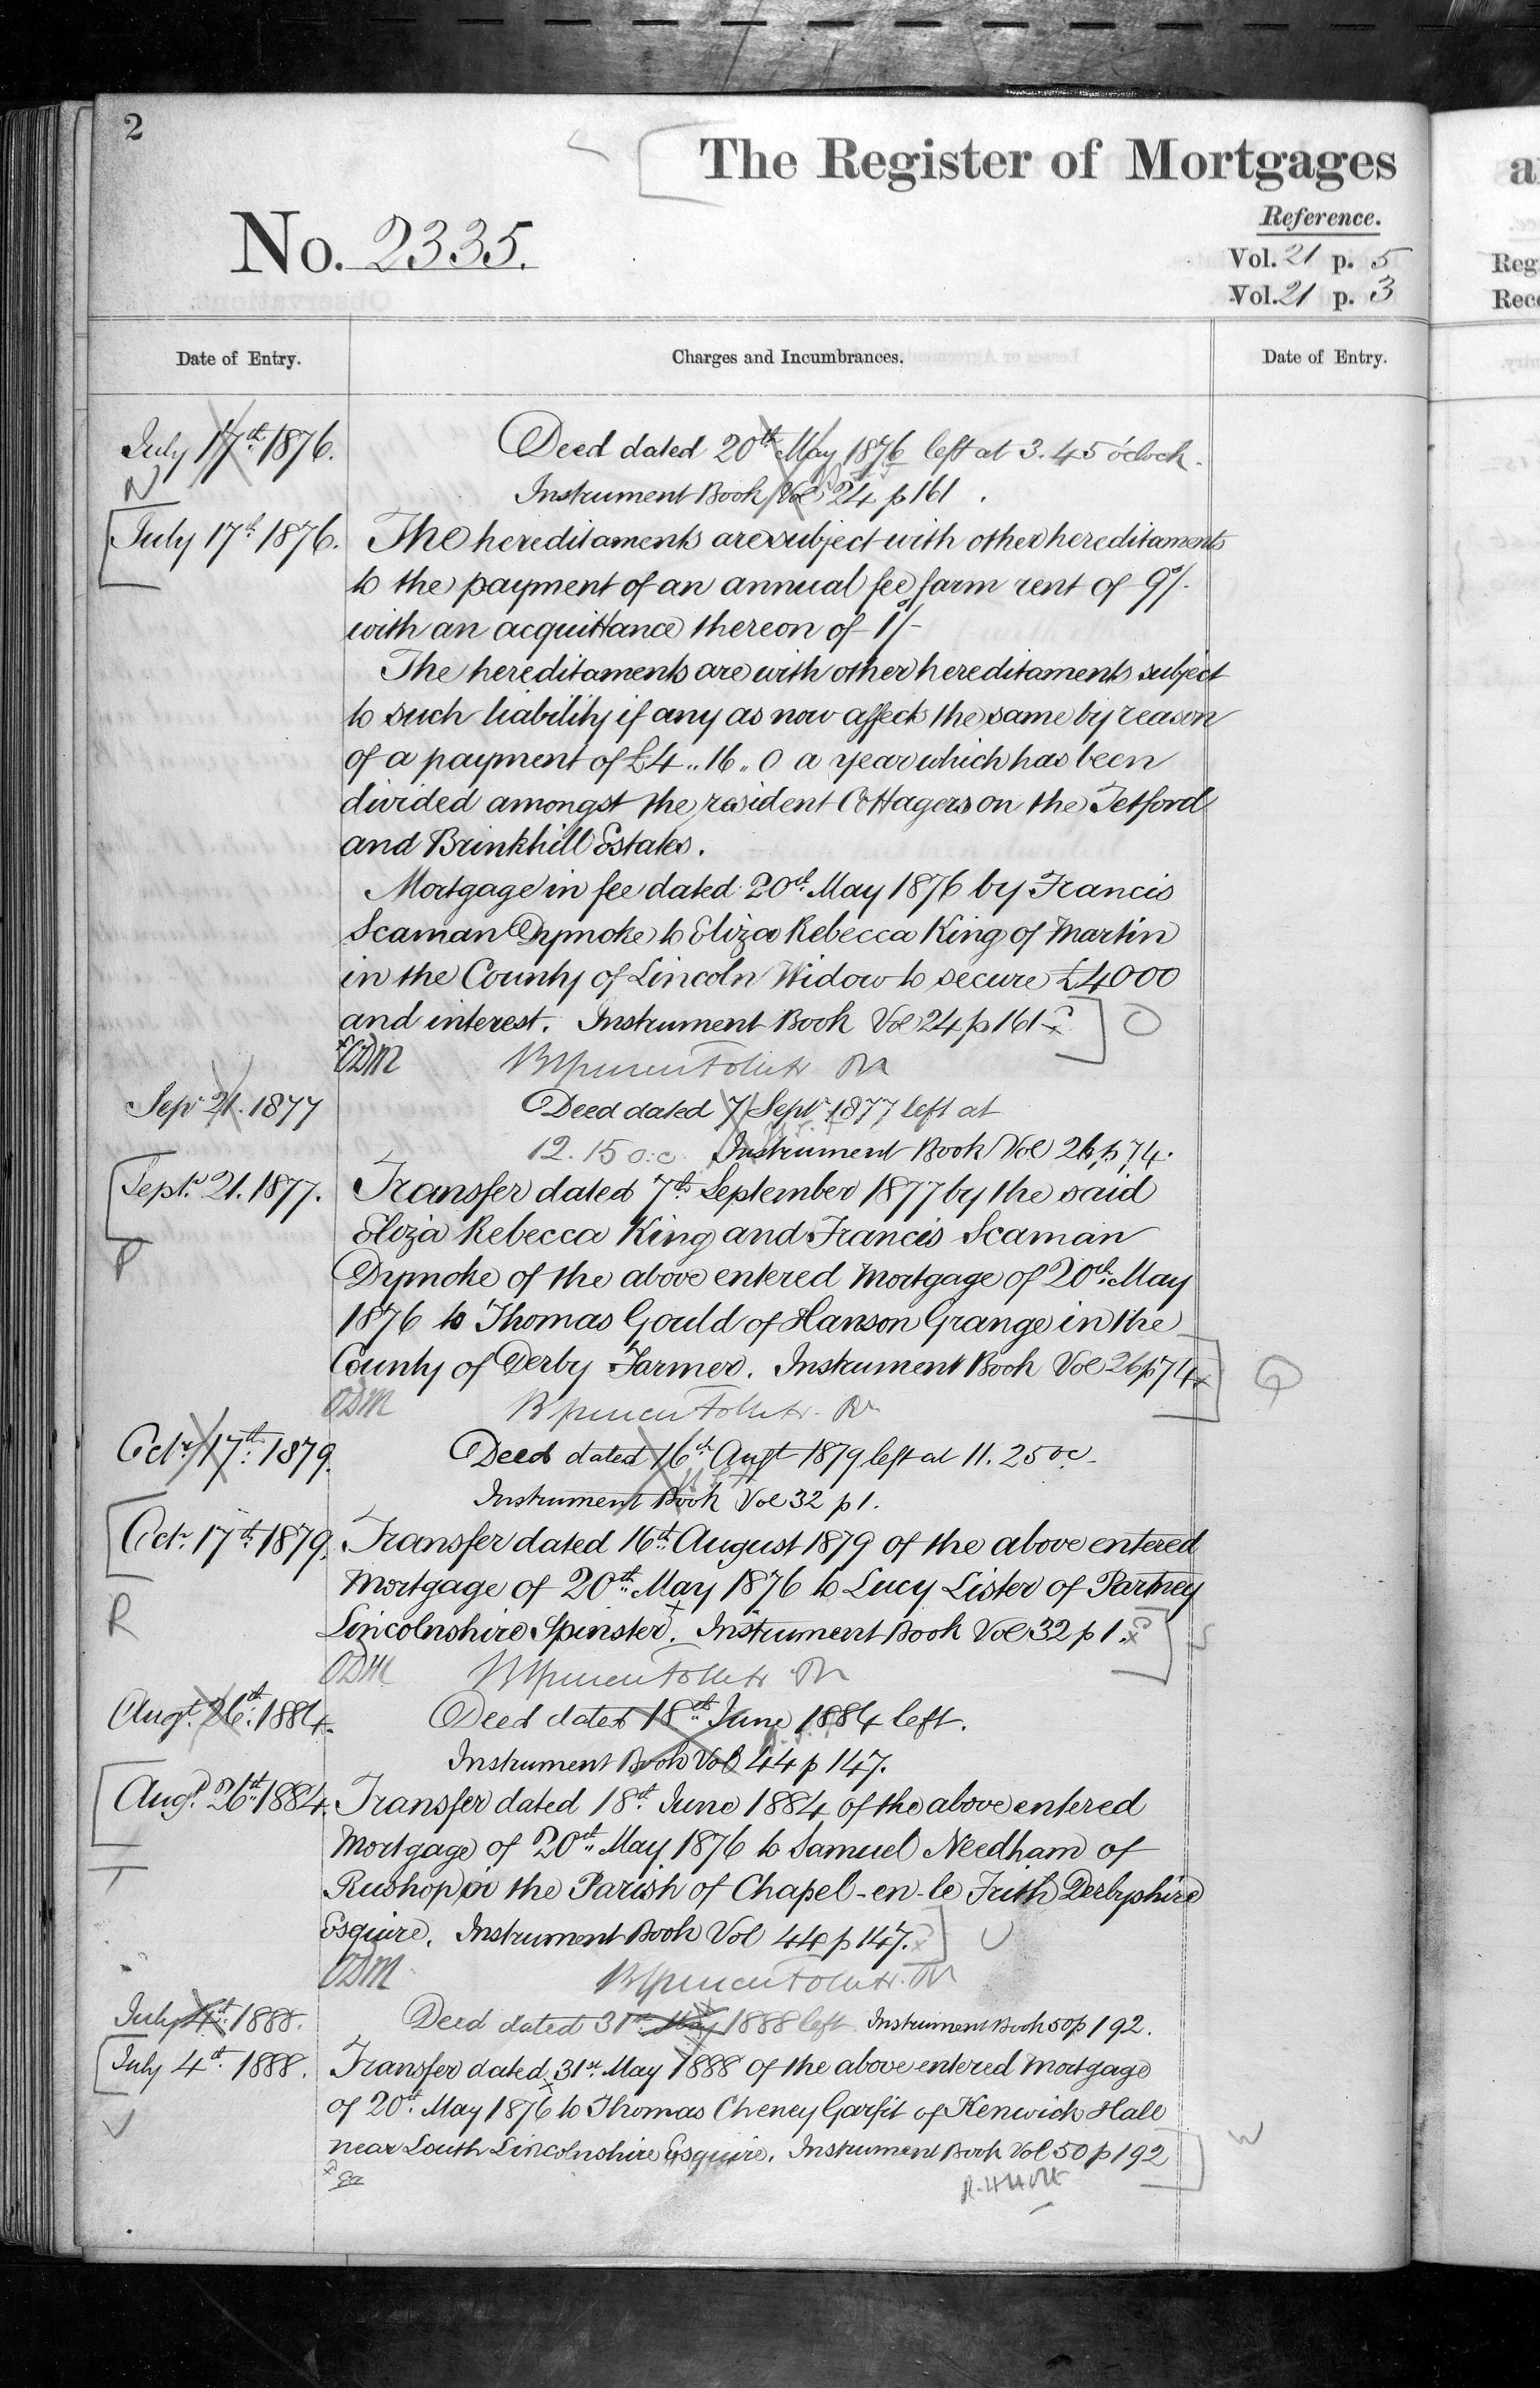 2
The Register of Mortgages
Reference.
No. 2335.
Vol. 21 p. 5
Vol. 21 p. 3
Reg
Rece
Date of Entry.
Charges and Incumbrances.
Date of Entry.
July 17th 1876.
Deed dated 20th May 1876 left at 3.45 o'clock.
Instrument Book Vol 24 p 161.
N
July 17th 1876.
The hereditaments are subject with other hereditaments
to the payment of an annual fee farm rent of 9/-
with an acquittance thereon of 1/-
The hereditaments are with other hereditaments subject
to such liability if any as now affects the same by reason
of a payment of £4..16..0 a year which has been
divided amongst the resident Cottagers on the Tetford
and Brinkhill Estates.
Mortgage in fee dated 20th May 1876 by Francis
Scaman Dymoke to Eliza Rebecca King of Martin
in the County of Lincoln Widow to secure £4000
and interest. Instrument Book Vol 24 p 161 x O
ODM
Sepr 21. 1877
Deed dated 7 Septr 1877 left at
12.15 o.c Instrument Book Vol 26 p 74.
Septr 21. 1877.
Transfer dated 7th September 1877 by the said
Eliza Rebecca King and Francis Scaman
P
Dymoke of the above entered Mortgage of 20th May
1876 to Thomas Gould of Hanson Grange in the
County of Derby Farmer. Instrument Book Vol 26 p 74 x Q
ODM
Octr 17th 1879.
Deed dated 16th Augt 1879 left at 11.25 oc.
Instrument Book Vol 32 p 1.
Octr 17th 1879.
Transfer dated 16th August 1879 of the above entered
Mortgage of 20th May 1876 to Lucy Lister of Partney
R
Lincolnshire Spinster. Instrument Book Vol 32 p 1. x S
ODM
Augt 26th 1884.
Deed dated 18th June 1884 left.
Instrument Book Vol 44 p 147.
Augt 26th 1884.
Transfer dated 18th June 1884 of the above entered
Mortgage of 20th May 1876 to Samuel Needham of
T
Rushop in the Parish of Chapel-en-le Frith Derbyshire
Esquire. Instrument Book Vol 44 p 147. x U
ODM
July 4th 1888.
Deed dated 31st May 1888 left Instrument Book 50 p 192.
July 4th 1888.
Transfer dated 31st May 1888 of the above entered Mortgage
of 20th May 1876 to Thomas Cheney Garfit of Kenwick Hall
V
near Louth Lincolnshire Esquire. Instrument Book Vol 50 p 192 W